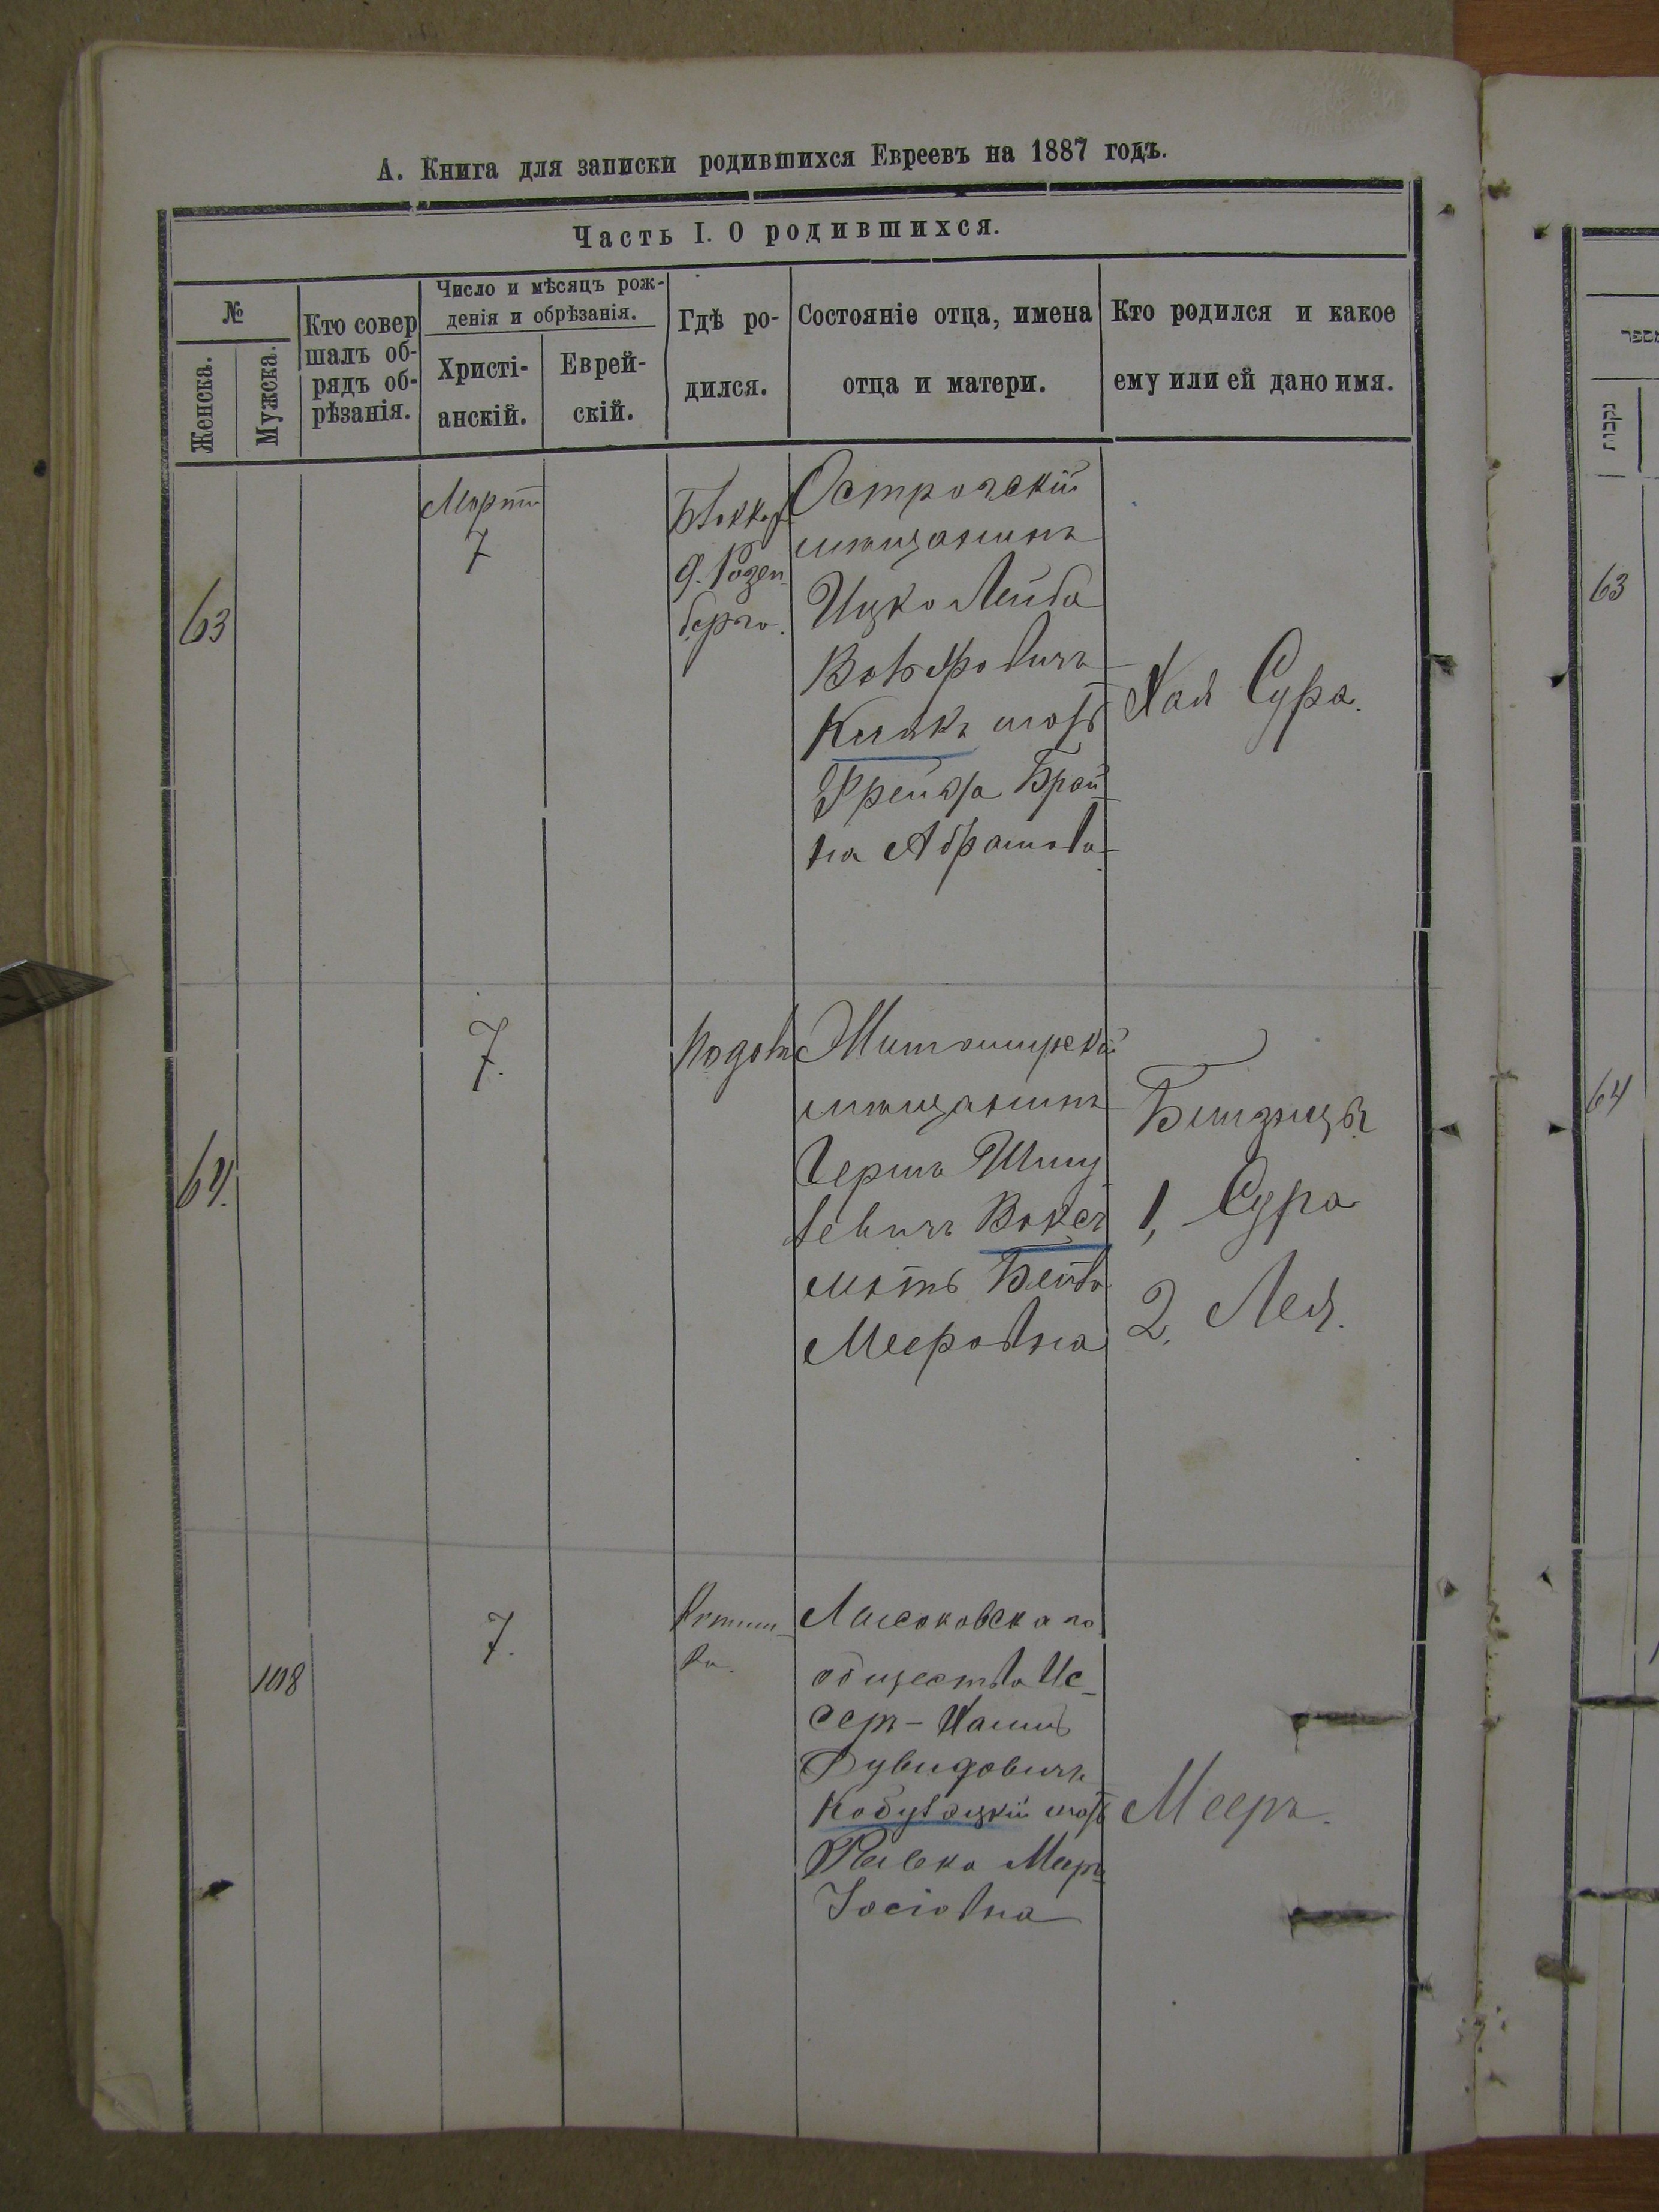 А. Книга для записки родившихся Евреевъ на 1887 годъ.
Часть I. О родившихся.
№
Женска.
Мужска.
Кто совер
шалъ об-
рядъ об-
рѣзанія.
Число и мѣсяцъ рож-
денія и обрѣзанія.
Христі-
анскій.
Еврей-
скій.
Гдѣ ро-
дился.
Состояніе отца, имена
отца и матери.
Кто родился и какое
ему или ей дано имя.
63
Мартъ
7
д. Розен
берга.
Острогскій
мѣщанинъ
Ицко Лейба
мать
Фрейда Брай
на Абрамова
Хая Сура.
64.
7.
Житомирскій
мѣщанинъ
Гершъ Шму
левичъ Воксъ
мать Бейла
Мееровна
Близнецы
1, Сура
2, Лея.
108
7.
общества Ис
серъ-Хаимъ
Дувидовичъ
мать
Ривка Мееръ
Іосіовна
Мееръ.
63
64